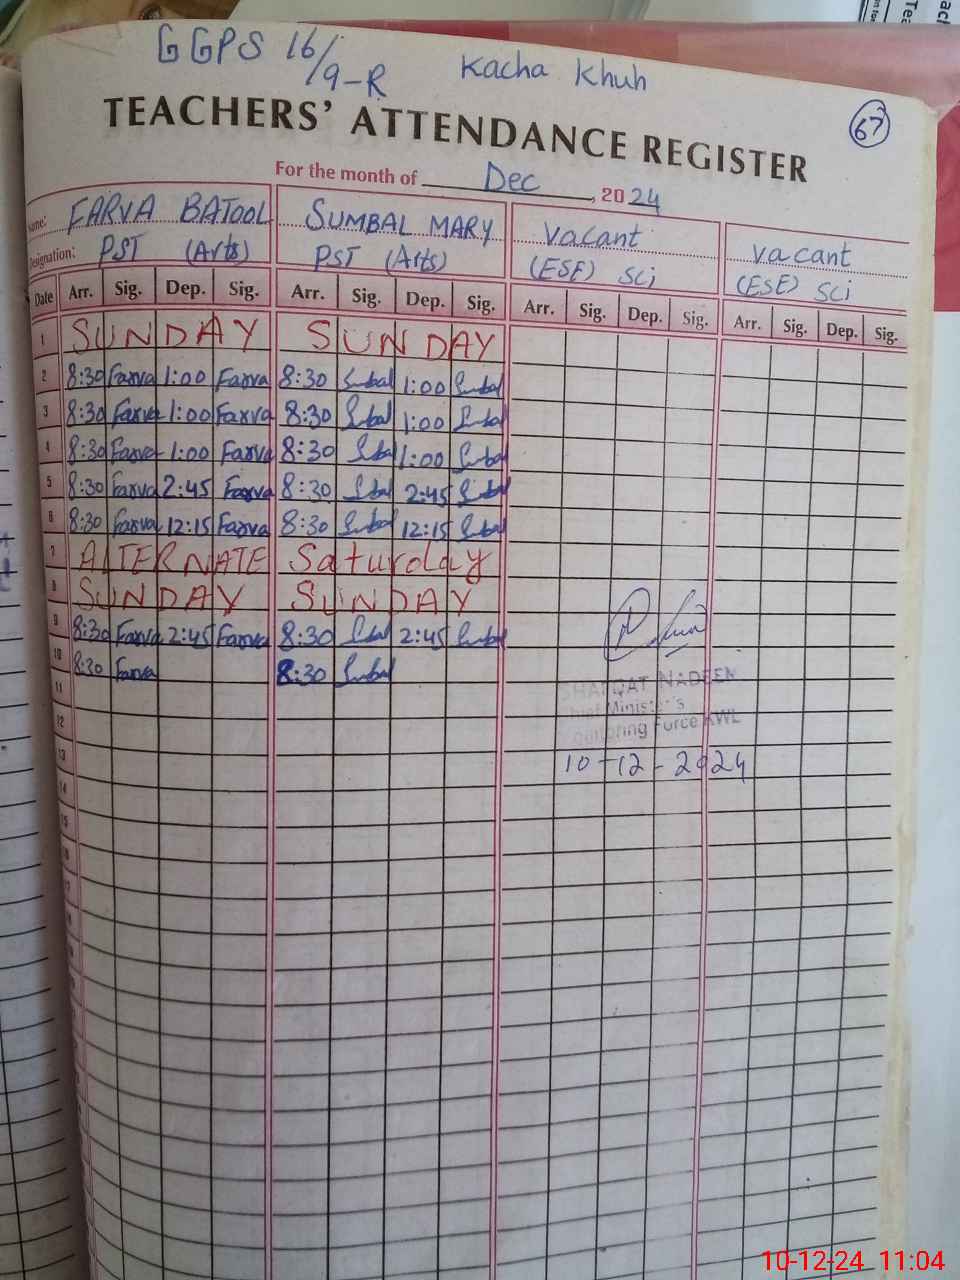 GGPS 16/9-R Kacha Khuh
67
TEACHERS' ATTENDANCE REGISTER
For the month of Dec, 2024
Name: FARVA BATOOL SUMBAL MARY vacant vacant
Designation: PST (Arts) PST (Arts) (ESE) Sci (ESE) Sci
Date Arr. Sig. Dep. Sig. Arr. Sig. Dep. Sig. Arr. Sig. Dep. Sig. Arr. Sig. Dep. Sig.
1 SUNDAY SUNDAY
2 8:30 Farva 1:00 Farva 8:30 Sumbal 1:00 Sumbal
3 8:30 Farva 1:00 Farva 8:30 Sumbal 1:00 Sumbal
4 8:30 Farva 1:00 Farva 8:30 Sumbal 1:00 Sumbal
5 8:30 Farva 2:45 Farva 8:30 Sumbal 2:45 Sumbal
6 8:30 Farva 12:15 Farva 8:30 Sumbal 12:15 Sumbal
7 ALTERNATE Saturday
8 SUNDAY SUNDAY
9 8:30 Farva 2:45 Farva 8:30 Sumbal 2:45 Sumbal
10 8:30 Farva 8:30 Sumbal
11
SHAFQAT NADEEM
12
Chief Minister's
Monitoring Force KWL
13
10-12-2024
14
15
16
17
10-12-24 11:04